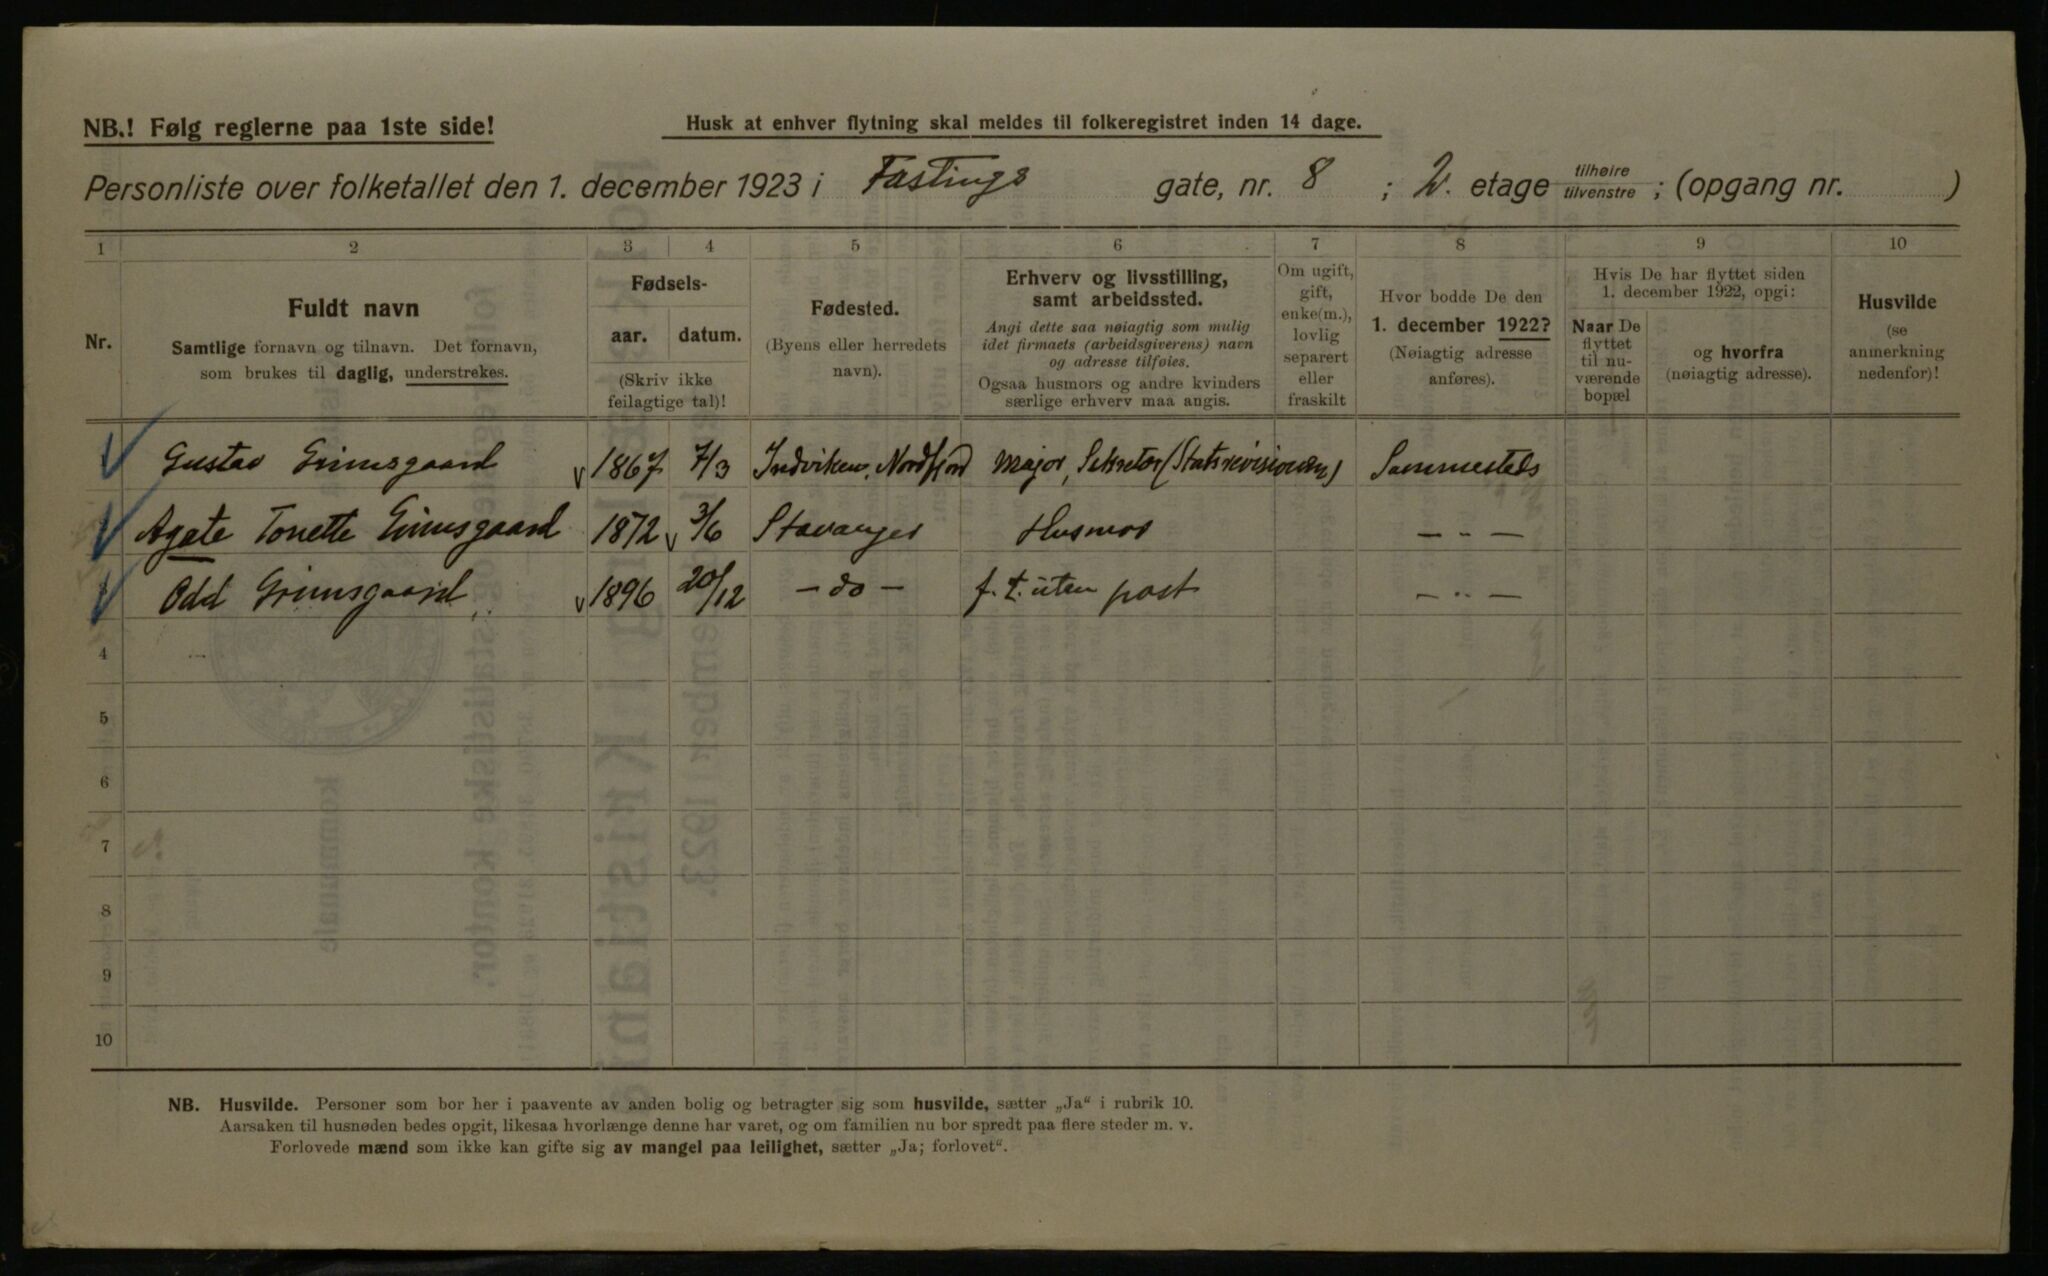 NB.! Følg reglerne paa 1ste side!
Husk at enhver flytning skal meldes til folkeregistret inden 14 dage.
Personliste over folketallet den 1. december 1923 i Fastings gate, nr. 8 ; 2. etage tilhøire tilvenstre ; (opgang nr. )
1 2 3 4 5 6 7 8 9 10
Nr.
Fuldt navn
Samtlige fornavn og tilnavn. Det fornavn,
som brukes til daglig, understrekes.
Fødsels-
aar. datum.
(Skriv ikke
feilagtige tal)!
Fødested.
(Byens eller herredets
navn).
Erhverv og livsstilling,
samt arbeidssted.
Angi dette saa nøiagtig som mulig
idet firmaets (arbeidsgiverens) navn
og adresse tilføies.
Ogsaa husmors og andre kvinders
særlige erhverv maa angis.
Om ugift,
gift,
enke(m.),
lovlig
separert
eller
fraskilt
Hvor bodde De den
1. december 1922?
(Nøiagtig adresse
anføres).
Hvis De har flyttet siden
1. december 1922, opgi:
Naar De
flyttet
til nu-
værende
bopæl
og hvorfra
(nøiagtig adresse).
Husvilde
(se
anmerkning
nedenfor)!
Gustav Grimsgaard 1867 7/3 Indviken, Nordfjord Major, Sekretær (Statsrevisionen) Sammesteds
Agate Tonette Grimsgaard 1872 3/6 Stavanger Husmor — " —
Odd Grimsgaard 1896 20/12 — do — f. t. uten post — " —
4
5
6
7
8
9
10
NB. Husvilde. Personer som bor her i paavente av anden bolig og betragter sig som husvilde, sætter „Ja" i rubrik 10.
Aarsaken til husnøden bedes opgit, likesaa hvorlænge denne har varet, og om familien nu bor spredt paa flere steder m. v.
Forlovede mænd som ikke kan gifte sig av mangel paa leilighet, sætter „Ja; forlovet".